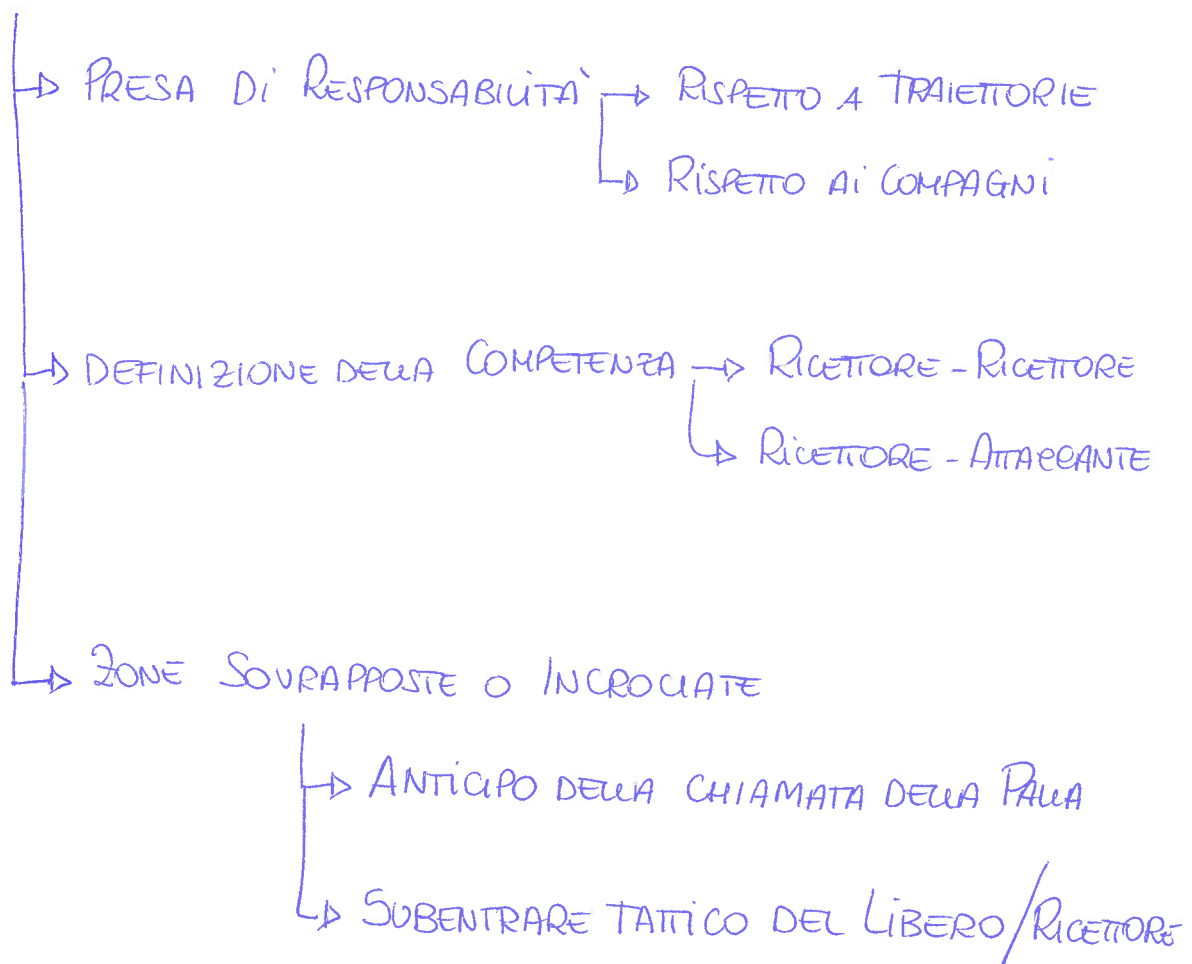 PRESA Di RESPONSABILITÀ → RISPETTO A TRAIETTORIE
RISPETTO Ai COMPAGNi
DEFINIZIONE DELLA COMPETENZA → RICETTORE - RICETTORE
RICETTORE - ATTACCANTE
ZONE SOVRAPPOSTE O INCROCIATE
ANTICIPO DELLA CHIAMATA DELLA PALLA
SUBENTRARE TATTICO DEL LIBERO/RICETTORE